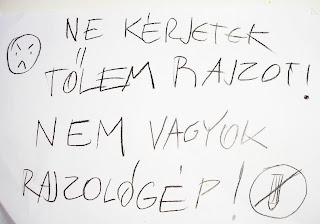 NE KÉRJETEK
TŐLEM RAJZOT!
NEM VAGYOK
RAJZOLÓGÉP!